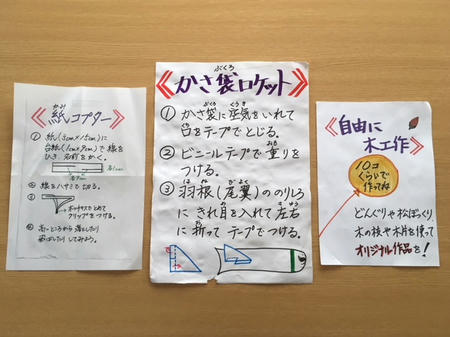 かみ
《紙コプター》
① 紙(3cm×15cm)に
ひき、名前をかく。
② 線をハサミで切る。
③ ホッチキスでとめて
クリップをつける。
④ 高いところから落としたり
してみよう。
ぶくろ
《かさ袋ロケット》
ぶくろ くうき
① かさ袋に空気をいれて
口をテープでとじる。
おも
② ビニールテープで重りを
つける。
はね
③ 羽根(尾翼)ののりしろ
にきれ目を入れて左右
に折ってテープでつける。
《自由に
木工作》
10コ
くらいで
作ってね
どんぐりや松ぼっくり
木の枝や木片を使って
オリジナル作品を!